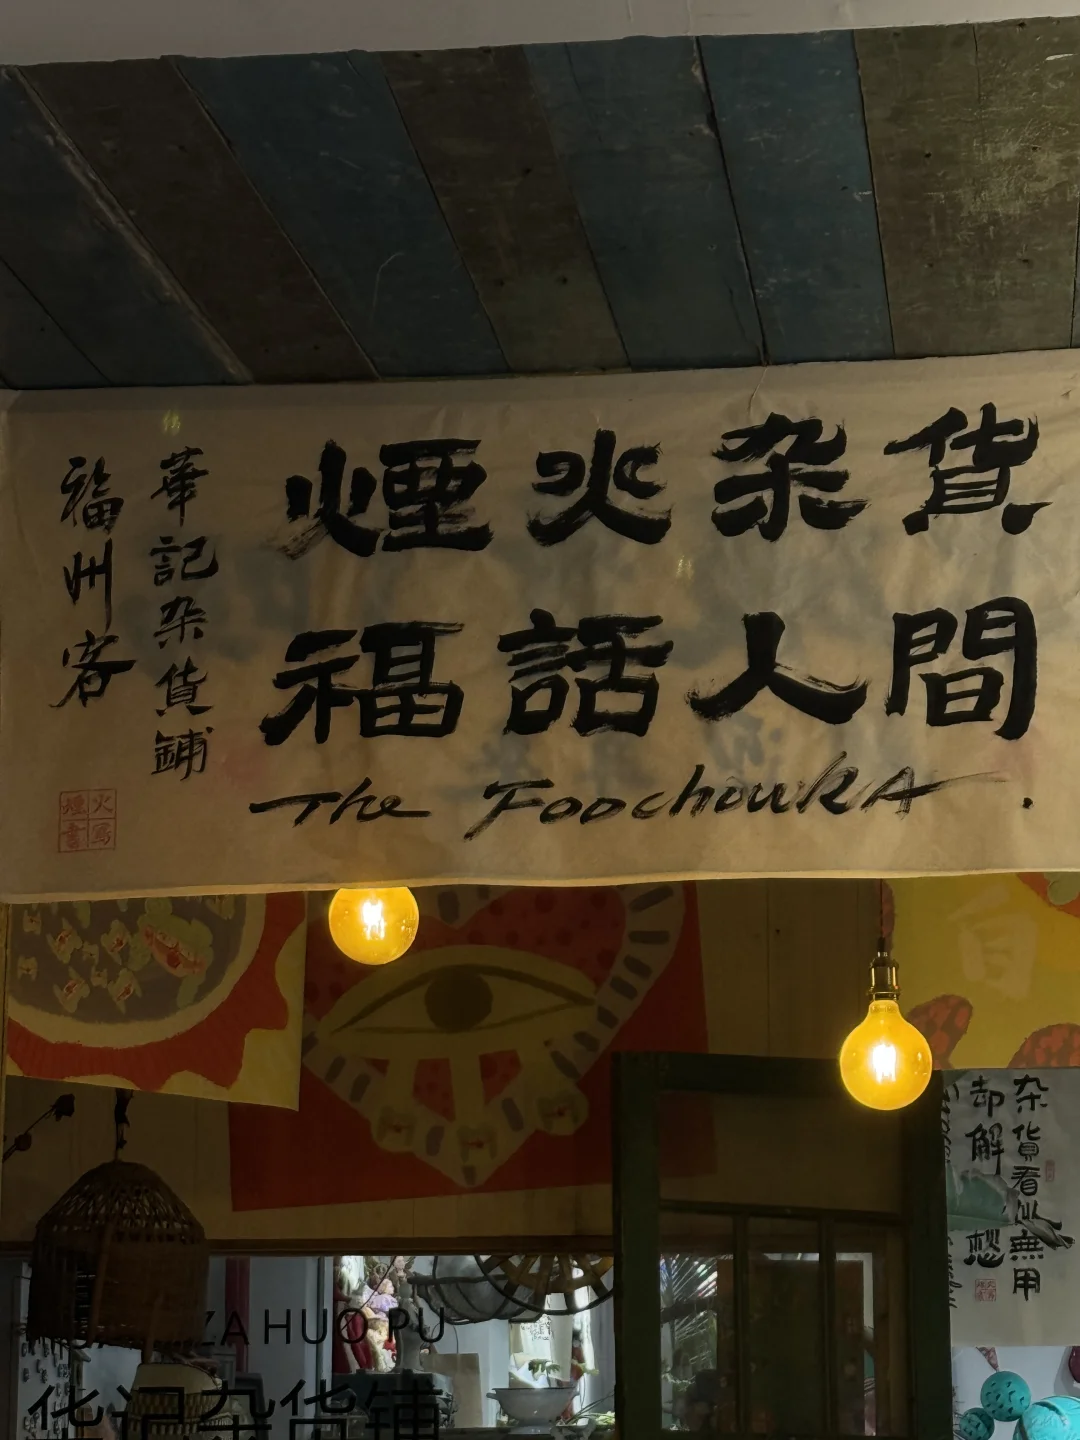 煙火杂貨
福話人間
The FoochouKA.
華記杂貨鋪
福州客
火寫
煙書
杂貨看似無用
却解 愁
ZA HUO PU
华记杂货铺